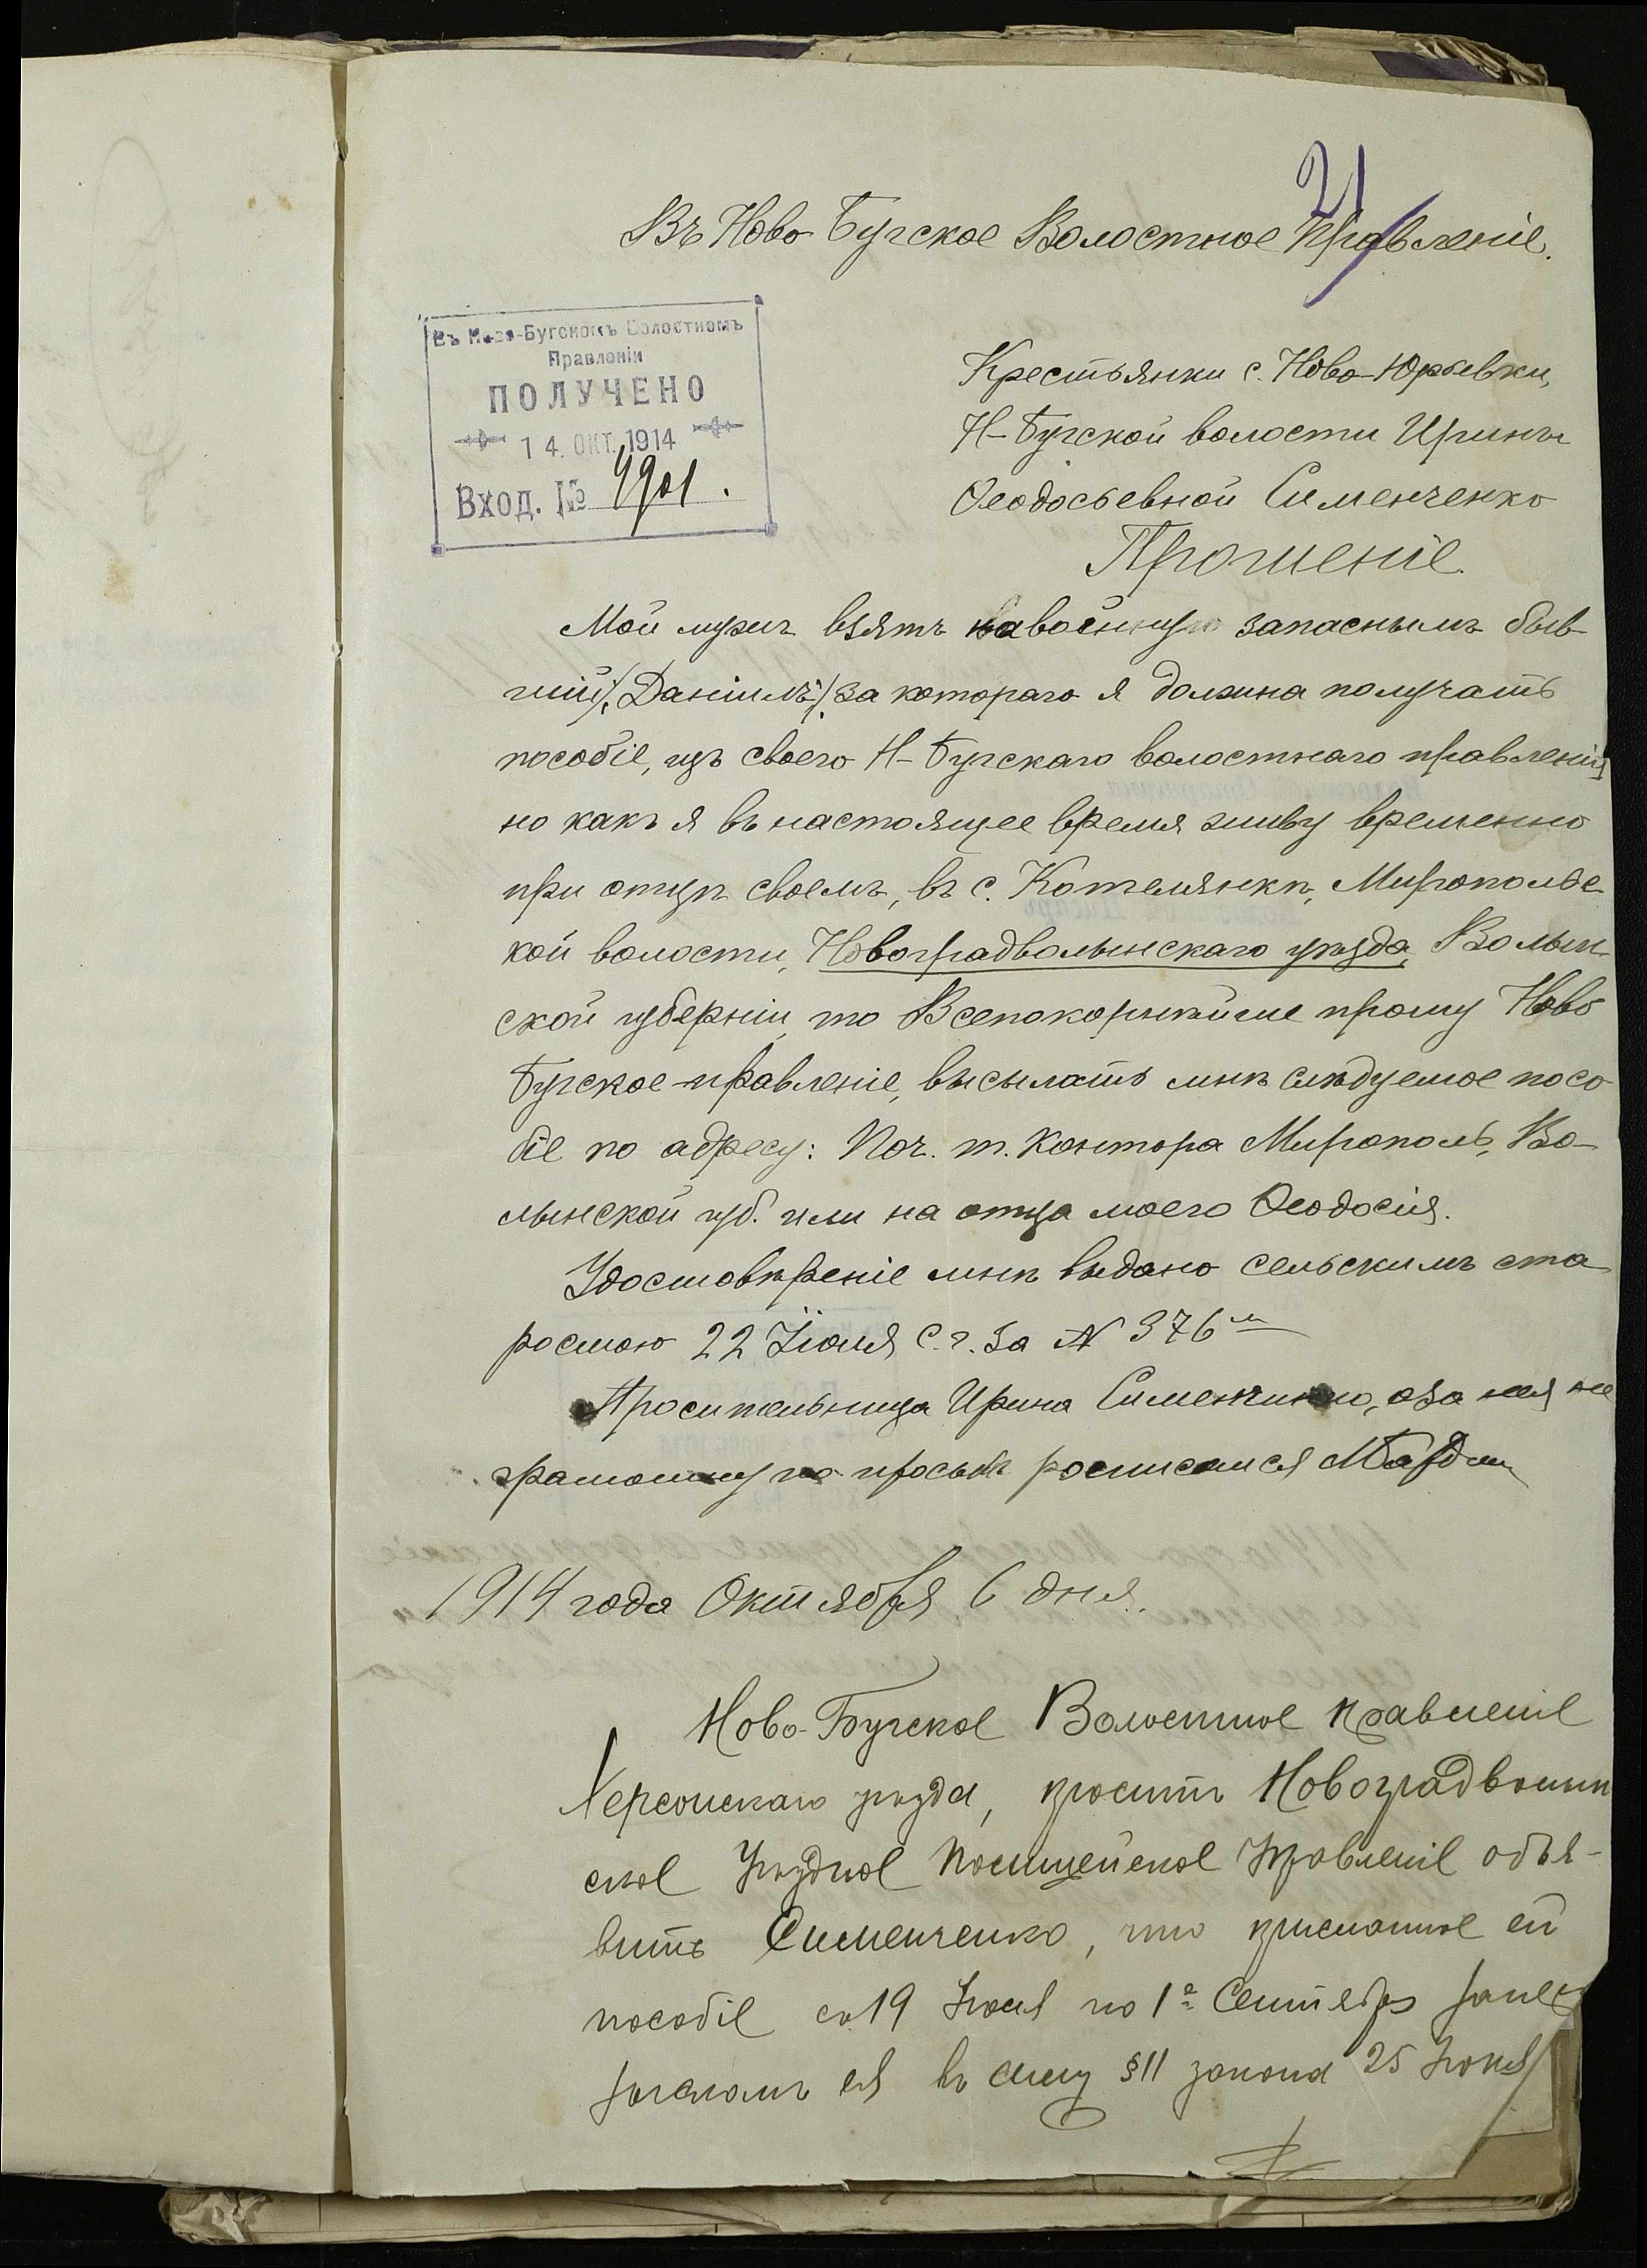 21
Въ Ново-Бугское Волостное Правленіе.
Въ Ново-Бугскомъ Волостномъ
Правленіи
ПОЛУЧЕНО
14. ОКТ. 1914
Вход. № 4901.
Крестьянки с. Ново-Юрьевки,
Н-Бугской волости Ирины
Ѳеодосьевной Сименченко
Прошеніе.
Мой мужъ взятъ на военную запаснымъ быв-
шій /:Даніилъ:/ за котораго я должна получать
пособіе, изъ своего Н-Бугскаго волостнаго правленія
но какъ я въ настоящее время живу временно
при отцѣ своемъ, въ с. Котелянкѣ, Миропольс-
кой волости, Новоградволынскаго уѣзда, Волын-
ской губерніи, то Всепокорнѣйше прошу Ново
Бугское правленіе, высылать мнѣ слѣдуемое посо-
біе по адресу: Поч. т. контора Мирополь, Во-
лынской губ. или на отца моего Ѳеодосія.
Удостовѣреніе мнѣ выдано сельскимъ ста-
ростою 22 Іюля с. г. за № 376м
Просительница Ирина Сименчинко, а за нея не
грамотну по просьбѣ росписался
1914 года Октября 6 дня.
Ново-Бугское Волостное Правленіе
Херсонскаго уѣзда, проситъ Новоградволын
ское Уѣздное Полицейское Управленіе объя-
вить Сименченко, что присланное ей
пособіе съ 19 Іюля по 1е Сентября
ея въ силу §11 закона 25 Іюня